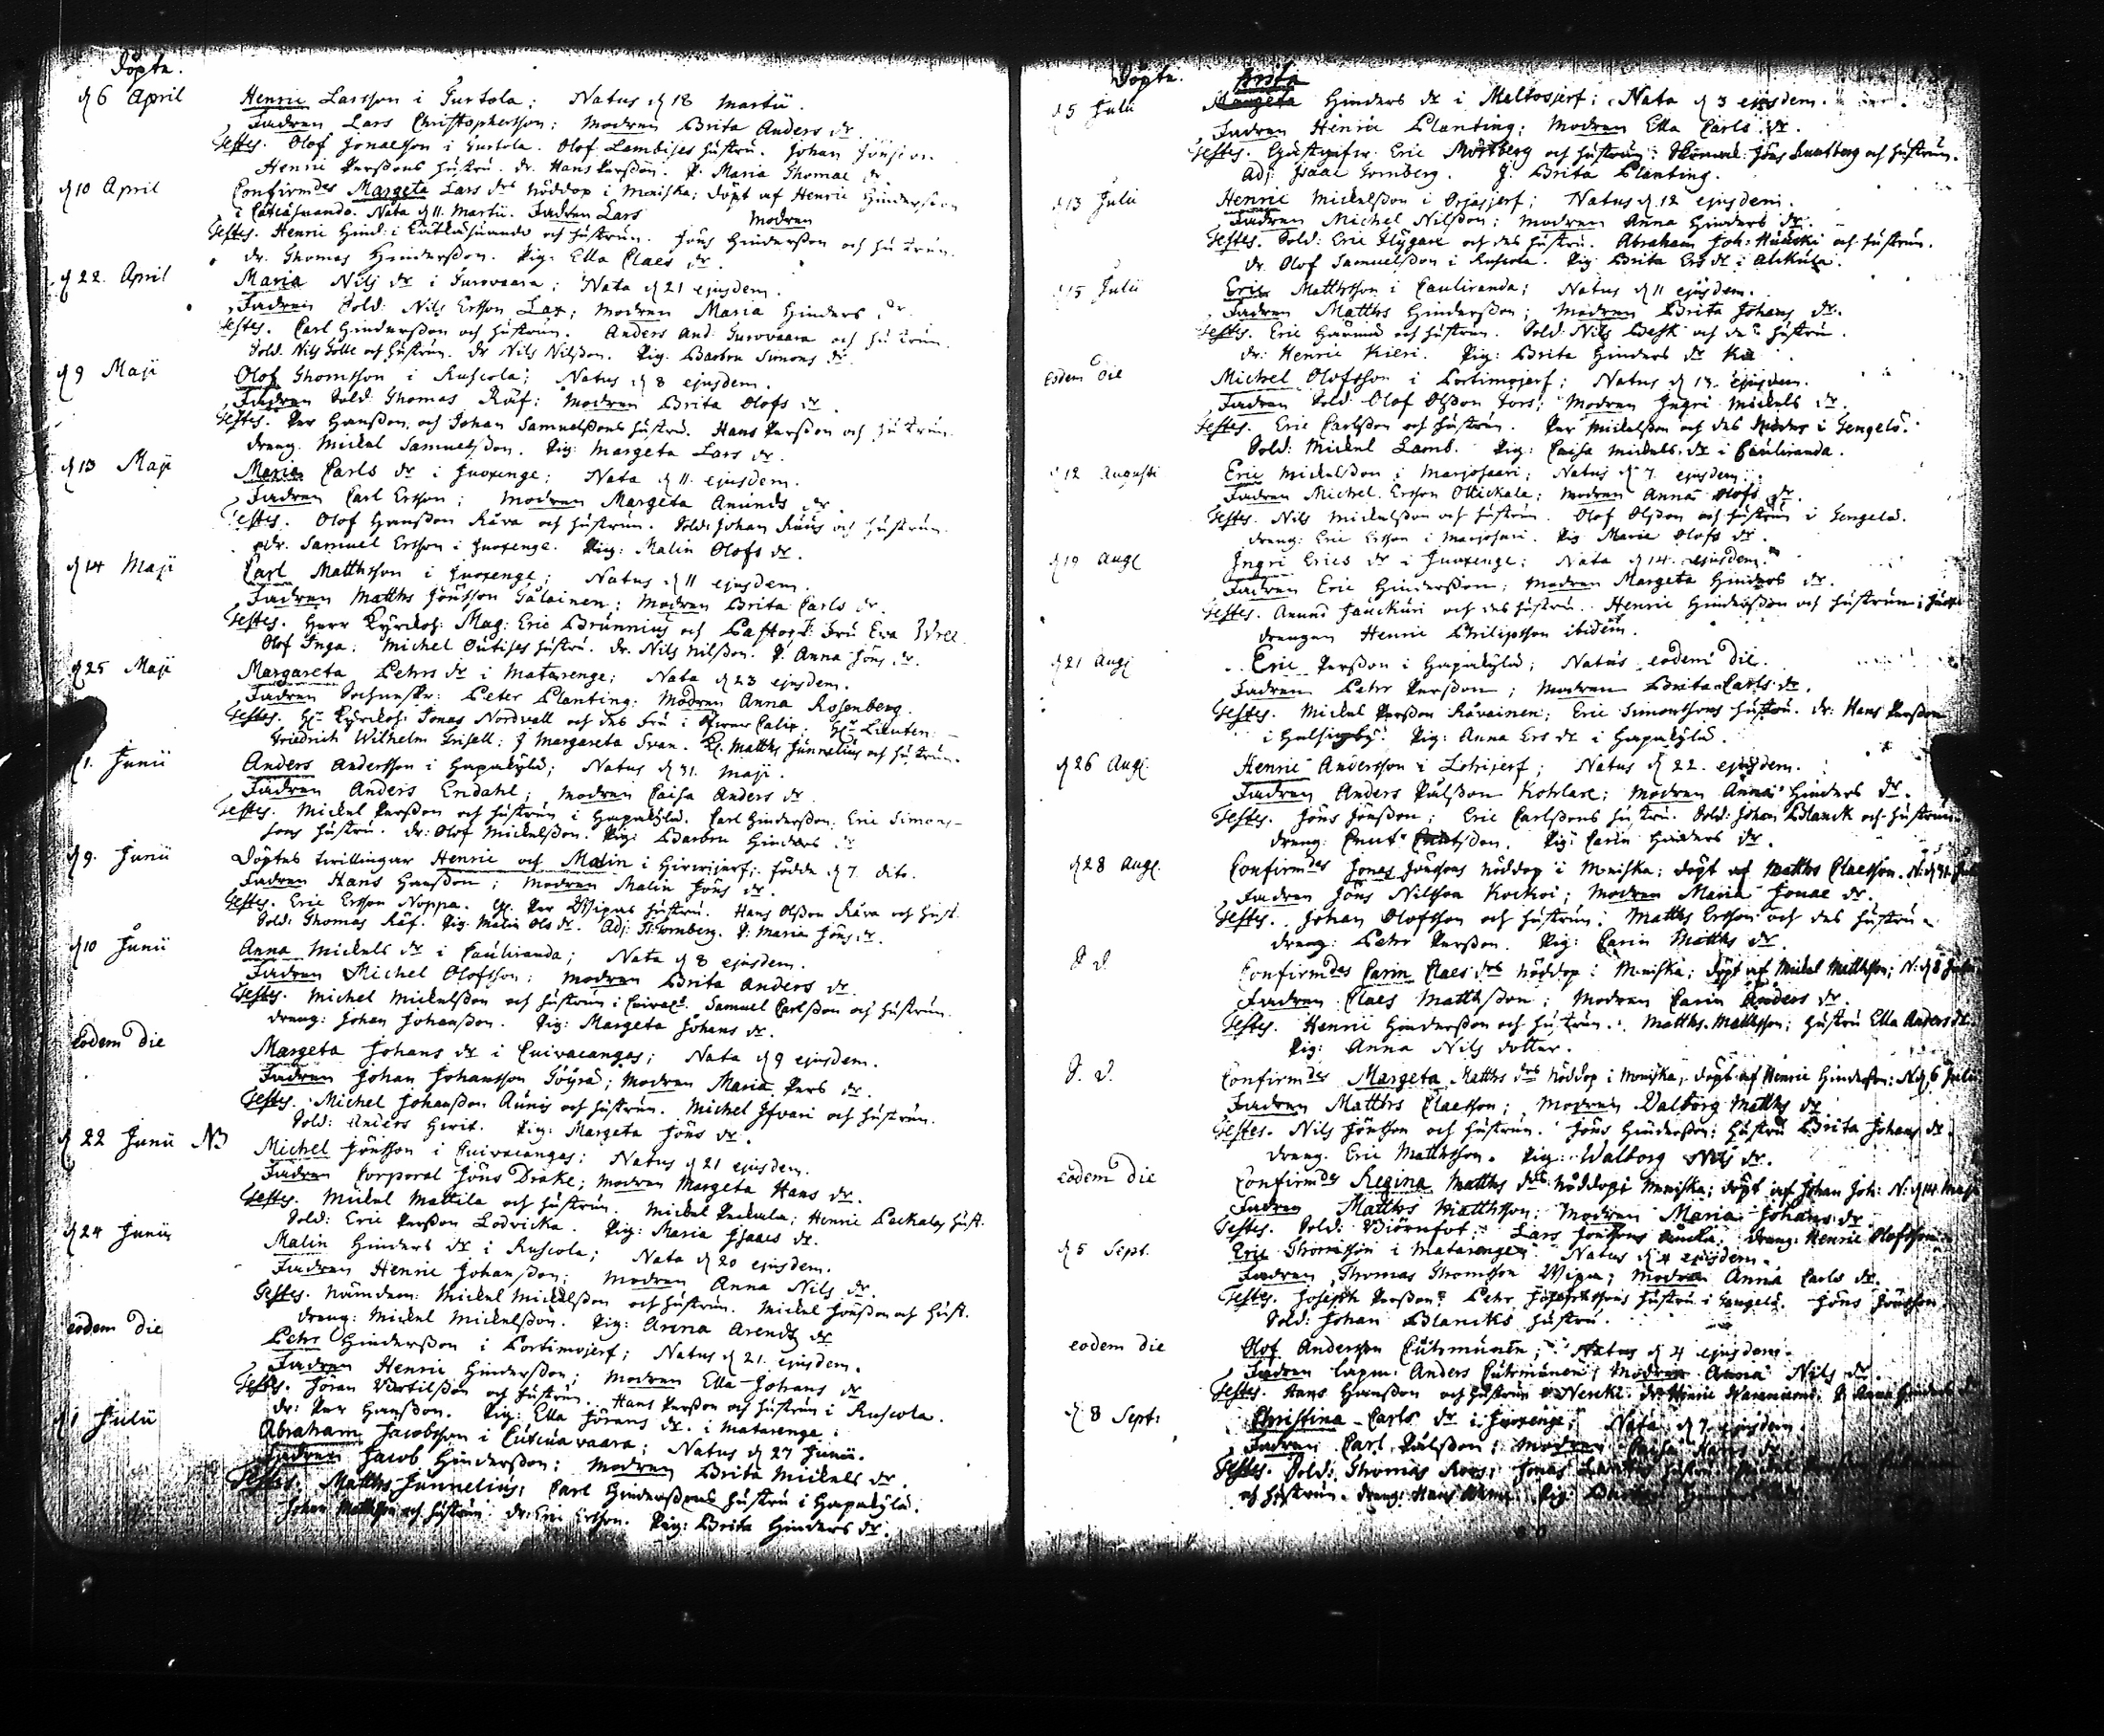 Döpte.
d 6 April Henric Larsson i Turtola; Natus d 18 Martii.
Fadren Lars Christophersson; Modren Brita Anders dr.
Testes. Olof Jonaesson i Turtola. Olof Lambises hustru. Johan Jönsson.
Henric Perssons hustru. dr. Hans Persson. P. Maria Thomae dr
d 10 April Confirmdes Margeta Lars drs nöddop i Moniska; döpt af Henric Hindersson
Nata d 11. Martii. Fadren Lars Modren
Testes. Henric Hind: i och hustrun. Jöns Hindersson och hustrun.
dr. Thomas Hindersson. Pig: Ella Claes dr.
d 22. April Maria Nils dr i Turovaara; Nata d 21 ejusdem.
Fadren Sold: Nils Ersson Lax; Modren Maria Hinders dr.
Testes. Carl Hindersson och hustrun. Anders And: Turovaara och hustrun.
Sold: Nils Golle och hustrun. dr Nils Nilsson. Pig: Barbru Simons dr.
d 9 Maji Olof Thomsson i Ruskola; Natus d 8 ejusdem.
Fadren Sold: Thomas Räf; Modren Brita Olofs dr.
Testes. Per Hansson, och Johan Samuelssons hustru. Hans Persson och hustrun.
dreng. Mickel Samuelsson. Pig: Margeta Lars dr.
d 13 Maji Maria Carls dr i Juoxenge; Nata d 11. ejusdem.
Fadren Carl Ersson; Modren Margeta Anunds dr.
Testes. Olof Hansson Råva och hustrun. Sold: Johan Ruus och hustrun.
dr. Samuel Ersson i Juoxenge. Pig: Malin Olofs dr.
d 14 Maji Carl Matthsson i Juoxenge; Natus d 11 ejusdem.
Fadren Matths Jönsson Taлainen; Modren Brita Carls dr.
Testes. Herr Kyrkoh: Mag: Eric Brunnius och Pastors Fru Eva Wret
Olof Inga; Michel Outises hustru. dr. Nils Nilsson. P. Anna Jöns dr.
d 25 Maji Margareta Pehrs dr i Matarenge; Nata d 23 ejusdem.
Fadren Sochnskr: Peter Planting; Modren Anna Rosenberg.
Testes. Hr Kyrkoh: Jonas Nordvall och des Fru i Öfvver Calix. Hr Lieuten:
Friedrich Wilhelm Grisell; J Margareta Svan. Kl. Matths Junnelius och hustrun.
d 1. Junii Anders Andersson i Hapakylä; Natus d 31. Maji.
Fadren Anders Endahl; Modren Caisa Anders dr
Testes. Mickel Persson och hustrun i Hapakylä. Carl Hindersson; Eric Simons-
sons hustru. dr: Olof Mickelsson. Pig: Barbru Hinders dr
d 9. Junii Döptes twillingar Henric och Malin i Hirvijerf; födde d 7. dito.
Fadren Hans Hansson; Modren Malin Jöns dr.
Testes. Eric Ersson Noppa. Per Wipas hustru. Hans Olsson Råva och hust.
Sold: Thomas Räf. Pig: Malin Ols dr. Adj: Is: Tornberg. P: Maria Jöns dr.
d 10 Junii Anna Mickels dr i Pauliranda; Nata d 8 ejusdem.
Fadren Michel Olofsson; Modren Brita Anders dr.
Testes. Michel Mickelsson och hustrun i Samuel Carlsson och hustrun.
dreng: Johan Johansson. Pig: Margeta Johans dr.
Eodem die Margeta Johans dr i Cuivacangas; Nata d 9 ejusdem.
Fadren Johan Johansson Töyrä; Modren Maria Pers dr.
Testes. Michel Johansson Aunis och hustrun. Michel Isvari och hustrun.
Sold: Anders Hirit. Pig: Margeta Jöns dr.
d 22 Junii NB Michel Jönsson i Cuivacangas; Natus d 21 ejusdem.
Fadren Corporal Jöns Drake; Modren Margeta Hans dr.
Testes. Mickel Mattila och hustrun. Mickel Peckula; Henric Peckalas hust.
Sold: Eric Persson Lodvicka. Pig: Maria Isaacs dr.
d 24 Junii Malin Hinders dr i Ruskola; Nata d 20 ejusdem.
Fadren Henric Johansson; Modren Anna Nils dr.
Testes. Nämdem: Mickel Mickelsson och hustrun. Mickel Jonsson och hust.
dreng: Mickel Mickelsson. Pig: Anna Arends dr
eodem die Pehr Hindersson i Portimojerf; Natus d 21. ejusdem.
Fadren Henric Hindersson; Modren Ella Johans dr
Testes. Jöran Bertilsson och hustrun. Hans Persson och hustrun i Ruskola.
dr: Per Hansson. Pig: Ella Jörans dr. i Matarenge.
d 1 Julii Abraham Jacobsson i vaara; Natus d 27 Junii.
Fadren Jacob Hindersson; Modren Brita Mickels dr.
Testes. Matths Junnelius; Carl Hinderssons hustru i Hapakylä.
Johan Matthsson och hustrun. dr: Eric Ersson. Pig: Brita Hinders dr.
Döpte. Brita
d 5 Julii Margeta Hinders dr i Meltosjerf; Nata d 3 ejusdem.
Fadren Henric Planting; Modren Ella Carls dr.
Testes. Gästgifv: Eric Mörtberg och hustrun; Jöns Lundberg och hustrun.
Adj: Isaac Tornberg. J. Brita Planting.
d 13 Julii Henric Mickelsson i Orjasjerf; Natus d 12 ejusdem.
Fadren Michel Nilsson; Modren Anna Hinders dr.
Testes. Sold: Eric Flygare och des hustru. Abraham Joh: Huuski och hustrun.
dr. Olof Samuelsson i Ruskola. Pig Brita Ers dr i Alikula.
d 15 Julii Eric Matthsson i Pauliranda; Natus d 11 ejusdem.
Fadren Matths Hindersson; Modren Brita Johans dr.
Testes. Eric och hustrun. Sold: Nils Besk och des hustru.
dr: Henric Kieri. Pig: Brita Hinders dr
Eodem die Michel Olofsson i Portimojerf; Natus d 13. ejusdem.
Fadren Sold: Olof Olsson Fors; Modren Ingri Mickels dr.
Testes. Eric Carlsson och hustrun. Per Mickelsson och des Moder i Gengelä.
Sold: Mickel Lamb. Pig: Caisa Mickels dr. i Pauliranda.
d 12 Augusti Eric Mickelsson i Marjosaari; Natus d 7. ejusdem.
Fadren Michel Ersson Ollickala; Modren Anna Olofs dr.
Testes. Nils Mickelsson och hustrun. Olof Olsson och hustrun i Gengelä.
dreng: Eric Ersson i Marjosari. Pig Marie Olofs dr.
d 19 Aug: Ingri Erics dr i Juoxenge; Nata d 14. ejusdem.
Fadren Eric Hindersson; Modren Margeta Hinders dr.
Testes. Anund Jauckuri och des hustru. Henric Hindersson och hustrun;
drengen Henric Philipsson ibidem.
d 21 Aug: Eric Persson i Hapakylä; Natus eodem die.
Fadren Pehr Persson; Modren Brita Carls dr.
Testes. Mickel Persson Råvainen; Eric Simonssons hustru. dr: Hans Persson
i Helsingby. Pig: Anna Ers dr i Hapakylä.
d 26 Aug: Henric Andersson i Lohijerf; Natus d 22. ejusdem.
Fadren Anders Pålsson Kohlare; Modren Anna Hinders dr.
Testes. Jöns Jönsson; Eric Carlssons hustru. Sold: Johan Blanck och hustrun.
dreng: Cnut Cnutsson. Pig: Carin Hinders dr.
d 28 Aug: Confirmdes Jonas Jönsons nöddop i Moniska; döpt af Matths Claesson. N: d 31 Juli
Fadren Jöns Nilsson Kockoi; Modren Maria Jonae dr.
Testes. Johan Olofsson och hustrun; Matths Ersson och des hustru.
dreng: Pehr Persson. Pig: Carin Matths dr.
D. d. Confirmdes Carin Claes drs nöddop i Moniska; döpt af Mickel Matthsson; N: d 8
Fadren Claes Matthsson; Modren Carin Anders dr.
Testes. Henric Hindersson och hustrun. Matths Matthsson; hustru Ella Anders dr.
Pig: Anna Nils dotter.
D. d. Confirmdes Margeta Matths drs nöddop i Moniska; döpt af Henric Hindersson; N: d 6 Julii
Fadren Matths Claesson; Modren Valborg Matths dr
Testes. Nils Jönsson och hustrun. Jöns Hindersson; hustru Brita Johans dr.
dreng: Eric Matthsson. Pig: Walborg Nils dr.
eodem die Confirmdes Regina Matths drs nöddop i Moniska; döpt af Johan Joh: N: d 14. Maji
Fadren Matths Matthsson; Modren Maria Johans dr
Testes. Sold: Biörnfot; Lars Jönssons dreng: Henric Olofsson.
d 5 Sept. Eric Thomsson i Matarenge; Natus d 4 ejusdem.
Fadren Thomas Thomsson Wipa; Modren Anna Carls dr.
Testes. Joseph Persson; Pehr Josephssons hustru i Gengelä. Jöns Jönsson.
Sold: Johan Blancks hustru.
eodem die Olof Andersson Cuhrmunen; Natus d 4 ejusdem.
Fadren Lapm: Anders Cuhrmunen; Modren Anna Nils dr.
Testes. Hans Hansson och hustrun Nerki. dr Henric P: Anna Hinders dr
d 8 Sept: Christina Carls dr i Juoxenge; Nata d 7 ejusdem.
Fadren Carl Pålsson; Modren Caisa Hans dr
Testes. Sold: Thomas Roos; Jonas hustru
och hustrun. dreng: Hans Pig: